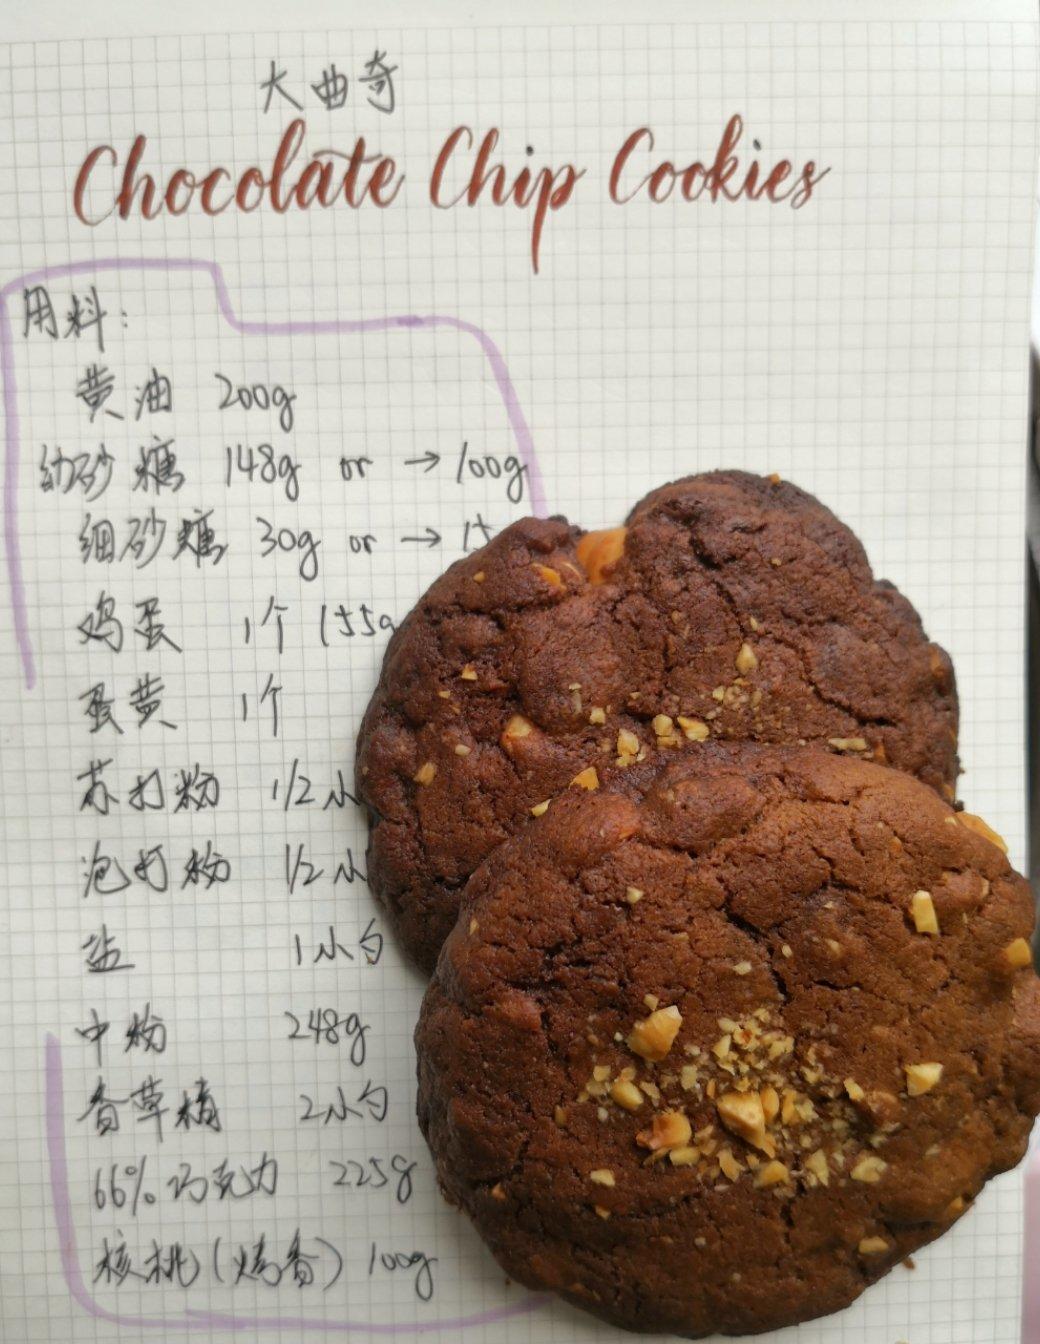 大曲奇
Chocolate Chip Cookies
用料:
黄油 200g
幼砂糖 148g or → 100g
细砂糖 30g or → 15
鸡蛋 1个 (55g
蛋黄 1个
苏打粉 1/2 小
泡打粉 1/2 小
盐 1小勺
中粉 248g
香草精 2小勺
66% 巧克力 225g
核桃(烤香) 100g